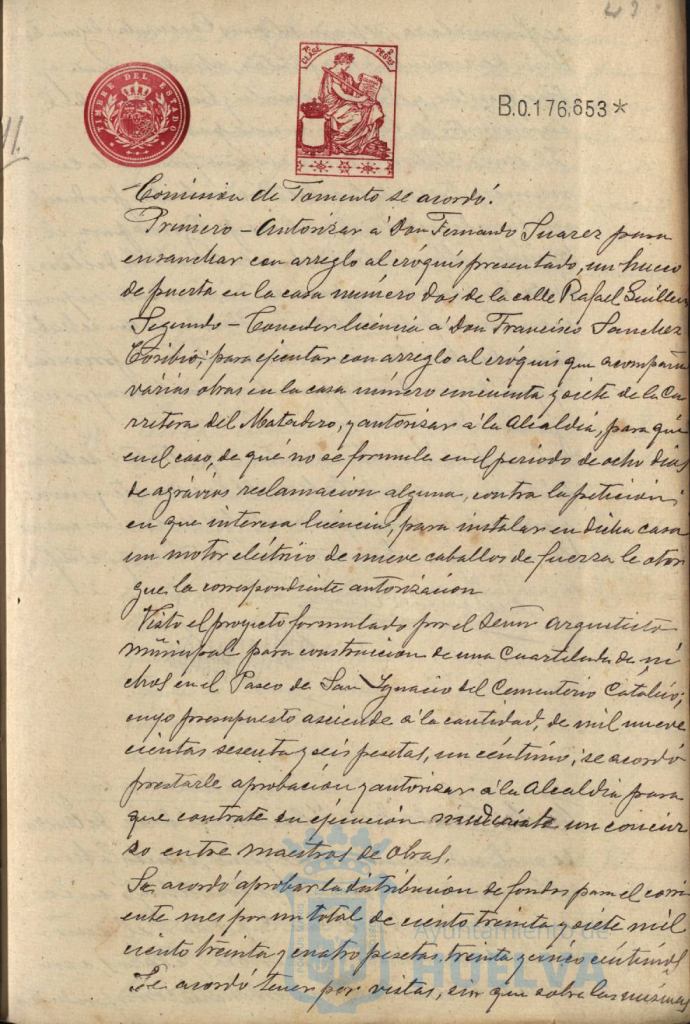 43
TIMBRE DEL ESTADO
7ª CLASE 2 PESETAS
B.0.176,653*
11.
Comision de Fomento se acordó:
Primero - Autorizar á Don Fernando Suarez para
ensanchar con arreglo al cróquis presentado, un hueco
de puerta en la casa número dos de la calle Rafael Guillen
Segundo - Conceder licencia á Don Francisco Sanchez
para ejecutar con arreglo al cróquis que acompaña
várias obras en la casa número cincuenta y siete de la Ca
rretera del Matadero, y autorizar á la Alcaldiá, para que
en el caso, de qué no se formule en el periodo de ocho dias
de agrávios reclamacion alguna, contra la petición
en que interesa licencia, para instalar en dicha casa
un motor eléctrico de nueve caballos de fuerza le otor
gue la correspondiente autorización
Visto el proyecto formulado por el Señor Arquitecto
municipal para construccion de una Cuartelada de ní
chos en el Paseo de San Ignacio del Cementerio Católico;
cuyo presupuesto asciende á la cantidad, de mil nueve
cientas sesenta y seis pesetas, un céntimo; se acordó
prestarle aprobación y autorizar á la Alcaldia para
que contrate su ejecución mediante un concur
so entre maestros de obras.
Se acordó aprobar la distribución de fondos para el corri
ente mes por un total de ciento treinta y siete mil
ciento treinta y cuatro pesetas treinta y cinco céntimos
Se acordó tener por vistas, sin que sobre las mismas
Ayuntamiento de
HUELVA